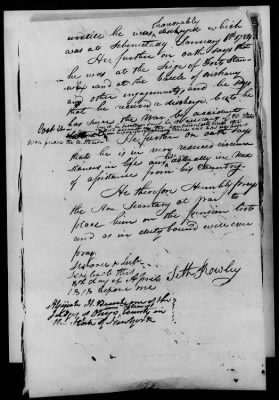 untill he was honorably discharged which
was at Schenectady January 1st 1784
He further on oath says that
he was at the Seige of Fort Stan
wix and at the Battle of
and other engagements, and he says
that he received a discharge, but he
has since the War by accident
lost it
He further on oath says
that he is in very reduced circum
stances in life and actually in need
of assistance from his Country
He therefore Humbly prays
the Hon Secretary at War to
place him on the pension list
and as in duty bound will ever
pray
Seth Rowley
Sworn & Sub-
scribed to this
8th day of April
1818 before me
one of the
Judges of Otsego County in
the State of New York